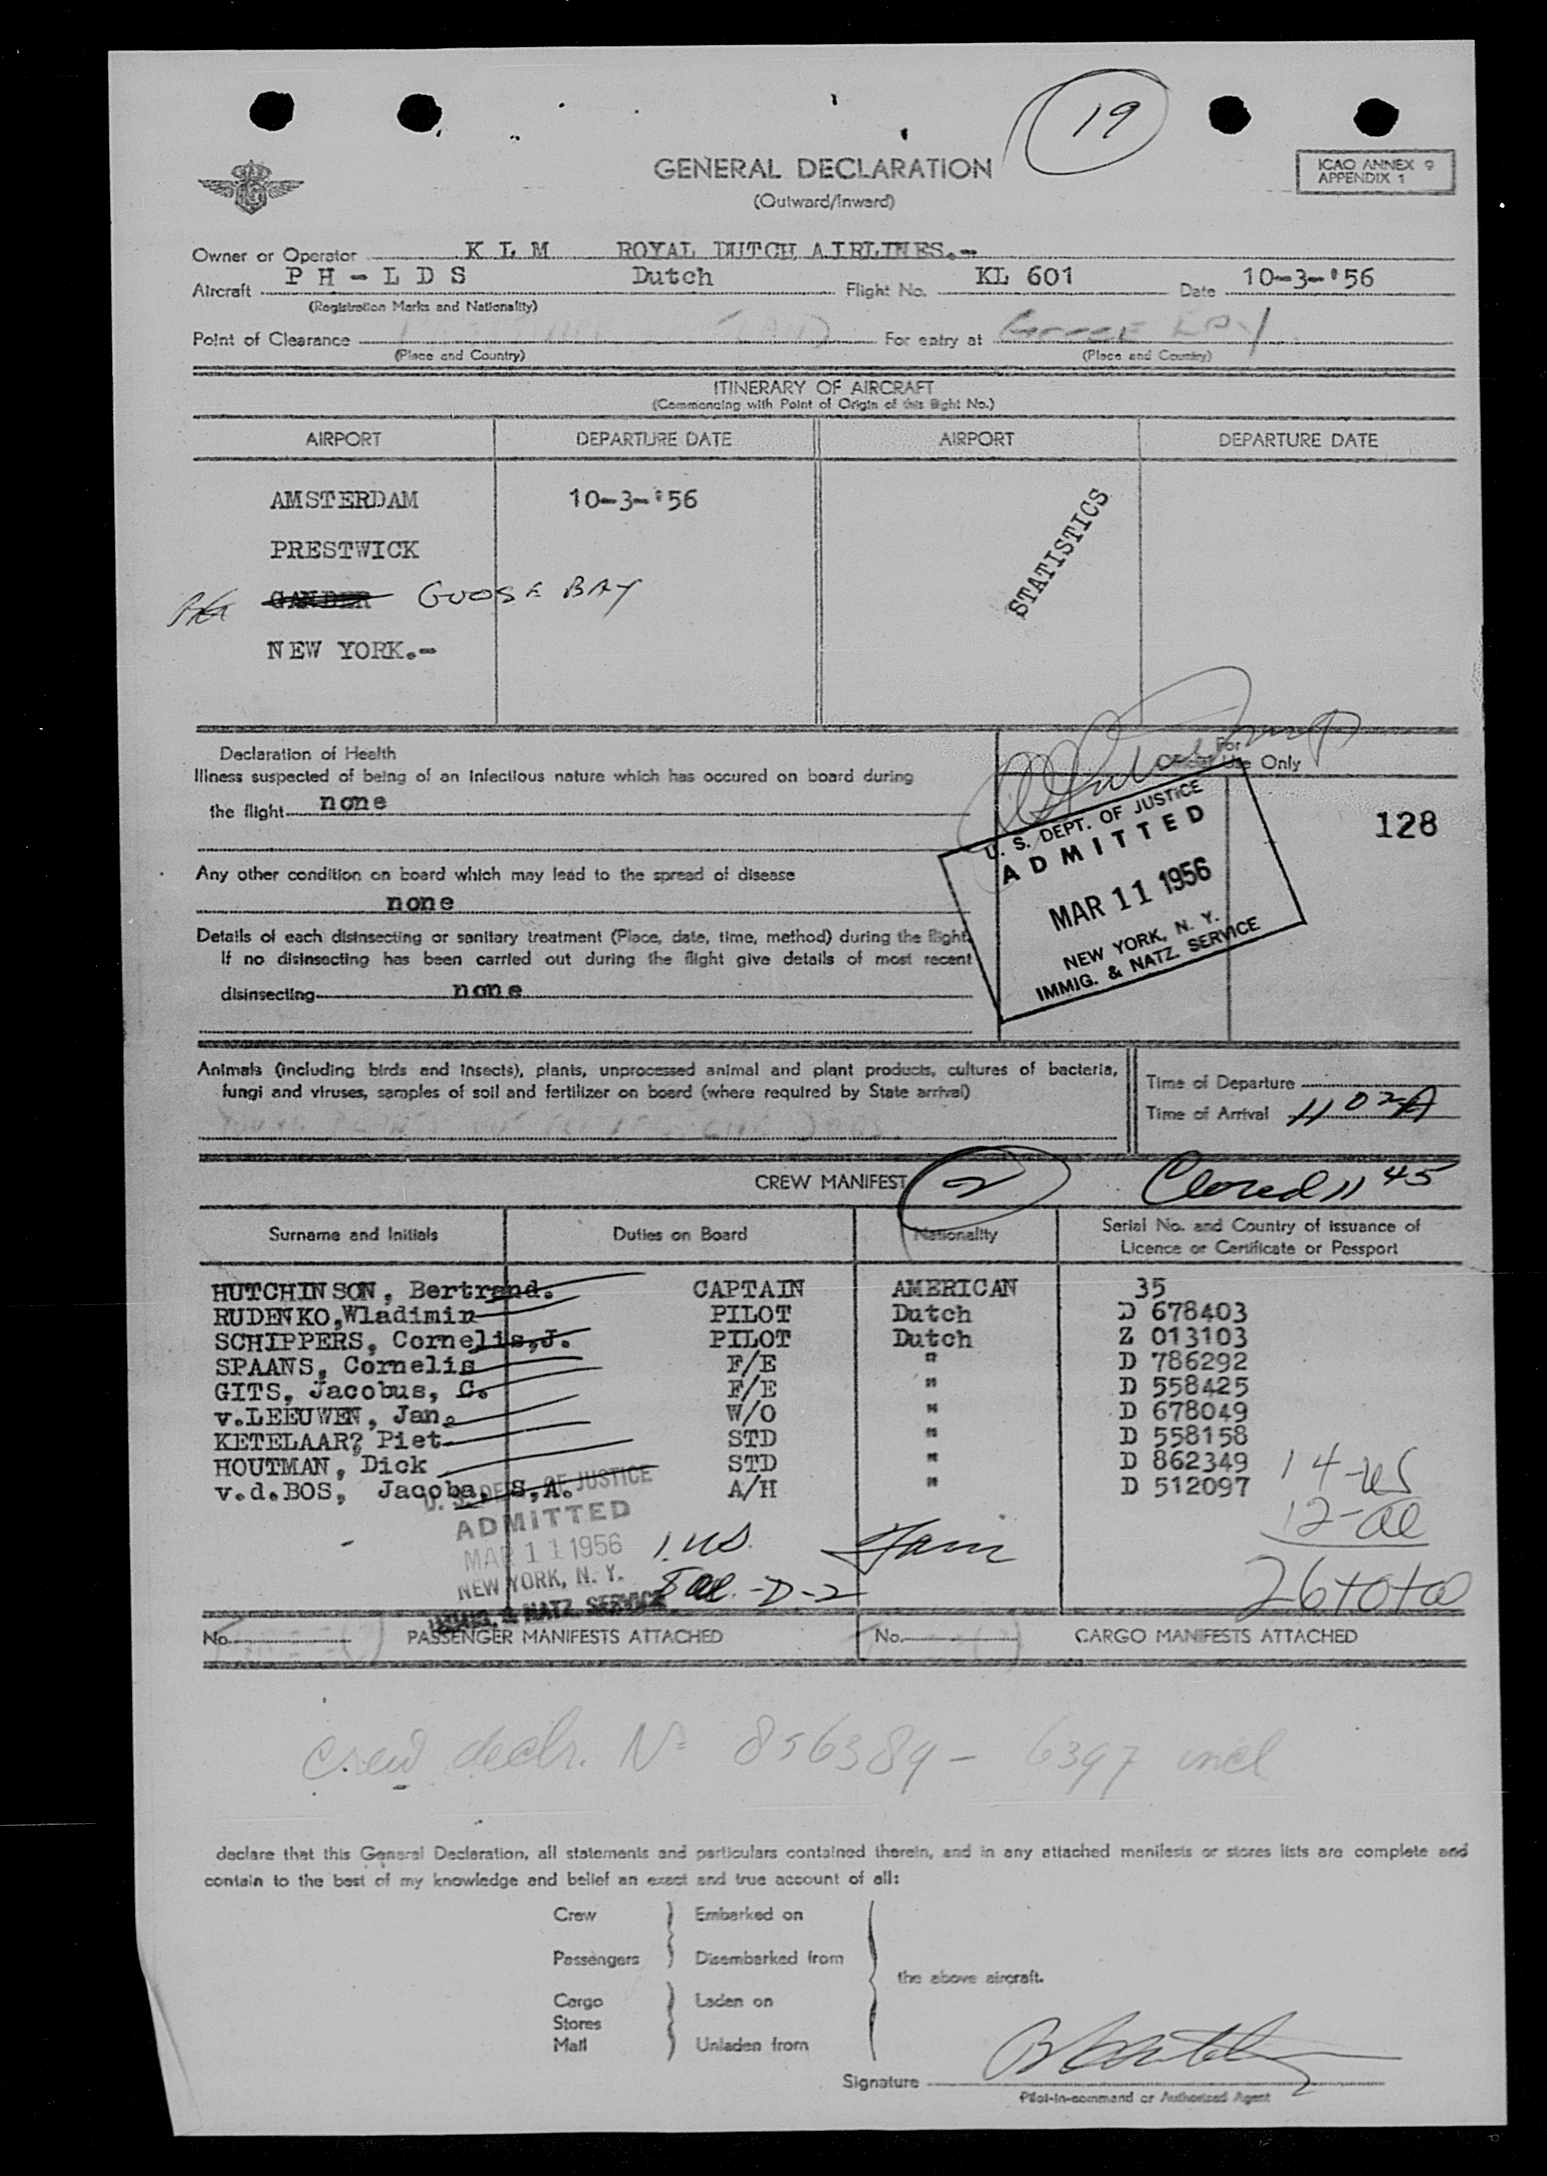 19
GENERAL DECLARATION
(Outward/Inward)
ICAO ANNEX 9
APPENDIX 1
Owner or Operator K L M ROYAL DUTCH AIRLINES.-
Aircraft P H - L D S Dutch Flight No. KL 601 Date 10-3-'56
(Registration Marks and Nationality)
Point of Clearance For entry at GOOSE BAY
(Place and Country) (Place and Country)
ITINERARY OF AIRCRAFT
(Commencing with Point of Origin of this flight No.)
AIRPORT DEPARTURE DATE AIRPORT DEPARTURE DATE
AMSTERDAM 10-3-'56
PRESTWICK
GANDER GOOSE BAY
NEW YORK.-
STATISTICS
Declaration of Health
Illness suspected of being of an infectious nature which has occured on board during
the flight none
Any other condition on board which may lead to the spread of disease
none
Details of each disinsecting or sanitary treatment (Place, date, time, method) during the flight.
If no disinsecting has been carried out during the flight give details of most recent
disinsecting none
For
Official Use Only
128
U. S. DEPT. OF JUSTICE
ADMITTED
MAR 11 1956
NEW YORK, N. Y.
IMMIG. & NATZ. SERVICE
Animals (including birds and insects), plants, unprocessed animal and plant products, cultures of bacteria,
fungi and viruses, samples of soil and fertilizer on board (where required by State arrival)
Time of Departure
Time of Arrival 11 02 A
CREW MANIFEST 2 Closed 11 45
Surname and Initials Duties on Board Nationality Serial No. and Country of issuance of
Licence or Certificate or Passport
HUTCHINSON, Bertrand. CAPTAIN AMERICAN 35
RUDENKO,Wladimin PILOT Dutch D 678403
SCHIPPERS, Cornelis,J. PILOT Dutch Z 013103
SPAANS, Cornelis F/E " D 786292
GITS, Jacobus, C. F/E " D 558425
v.LEEUWEN, Jan. W/O " D 678049
KETELAAR? Piet STD " D 558158
HOUTMAN, Dick STD " D 862349
v.d.BOS, Jacoba, S,A. A/H " D 512097
U. S. DEPT. OF JUSTICE
ADMITTED
MAR 11 1956
NEW YORK, N. Y.
IMMIG. & NATZ. SERVICE
1 US.
8 al. -D-2
14-us
12-al
26 total
No. PASSENGER MANIFESTS ATTACHED No. CARGO MANIFESTS ATTACHED
Crew declr. No 856389 - 6397 incl
declare that this General Declaration, all statements and particulars contained therein, and in any attached manifests or stores lists are complete and
contain to the best of my knowledge and belief an exact and true account of all:
Crew Embarked on
Passengers Disembarked from
the above aircraft.
Cargo Laden on
Stores
Mail Unladen from
Signature
Pilot-in-command or Authorised Agent